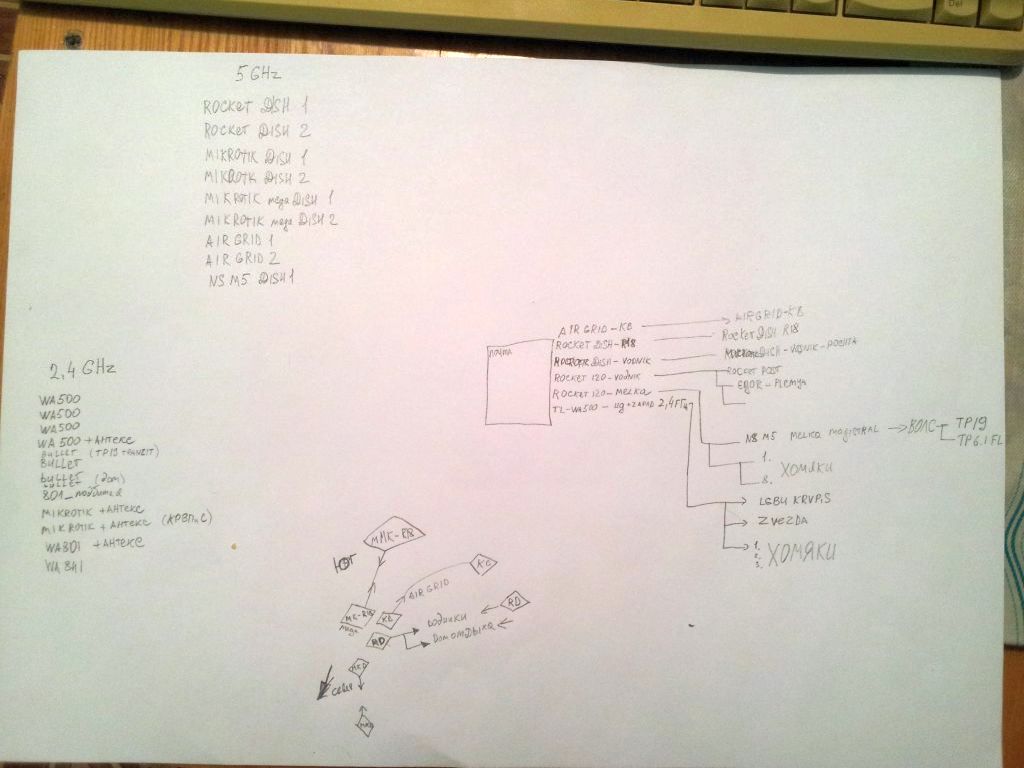 Del
5 GHz
ROCKET DISH 1
ROCKET DISH 2
MIKROTIK DISH 1
MIKROTK DISH 2
MIKROTIK mega DISH 1
MIKROTIK mega DISH 2
AIR GRID 1
AIR GRID 2
NS M5 DISH 1
2,4 GHz
WA500
WA500
WA500
WA 500 + АНТЕКС
BULLET (TP19 TRANZIT)
BULLET
bullet (Dom)
801_
MIKROTIK + АНТЕКС
MIKROTIK + АНТЕКС
WA801 + АНТЕКС
WA 841
ПОЧТА
AIR GRID-KB
ROCKET DISH-R18
DISH-VODNIK
ROCKET 120-VODNIK
ROCKET 120-MELKA
TL-WA500 - ЮД+ZAPAD 2,4ГГц
AIRGRID-KB
Rocket DISH R18
DISH-VODNIK-POCHTA
ROCKET POST
EGOR-PLEMYA
NS M5 MELKA MAGISTRAL
ВОЛС
TP19
TP6.1 FL
1.
ХОМЯКИ
8.
LGBU KRVP.S
ZVEZDA
1.
2.
3.
ХОМЯКИ
ЮГ
MMK-R18
MK-R18
mega
KB
AIR GRID
KC
MD
РОДНИКИ
ДОМ ОТДЫХА
RD
MKD
СЕВЕР
MKD